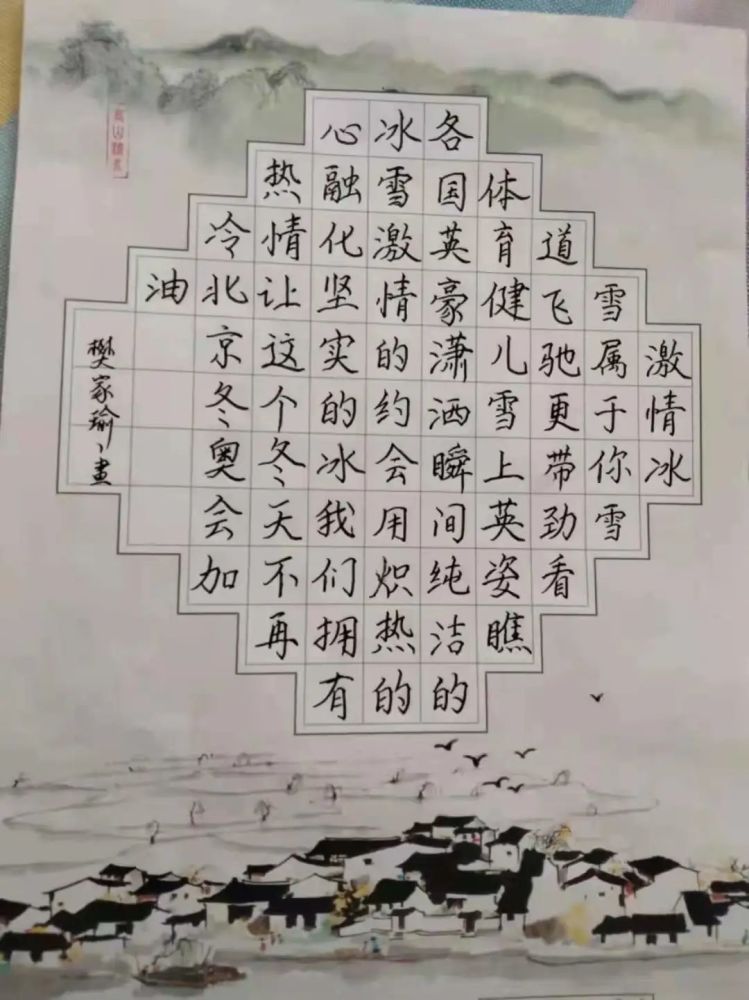 激情冰
雪属于你雪
道飞驰更带劲看
体育健儿雪上英姿瞧
各国英豪潇洒瞬间纯洁的
冰雪激情的约会用炽热的
心融化坚实的冰我们拥有
热情让这个冬天不再
冷北京冬奥会加
油
樊家瑜